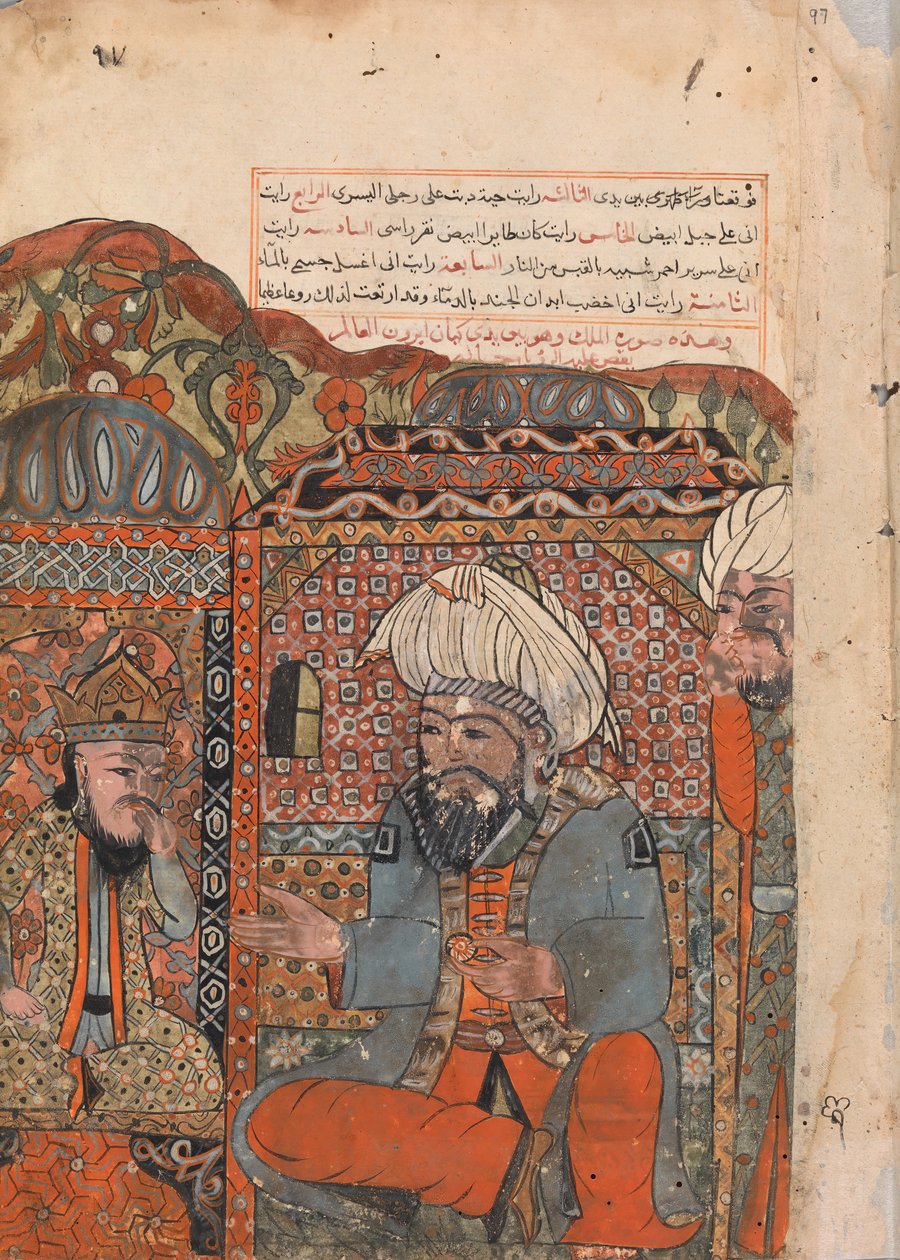 97
٩٧
فوقعتا وسراطوى بين يدى الثالثه رايت حية دبت على رجلى اليسرى الرابع رايت
انى على جبل ابيض الخامس رايت كان طايرا ابيض نقر راسى السادسه رايت
انى على سرير احمر شبيه بالقبس من النار السابعة رايت انى اغسل جسمى بالماء
الثامنة رايت انى اخضب ابدان الجند بالدماء وقد ارتعت لذلك روعا عظيما
وهذه صورة الملك وهو بين يدي كبان ايرون العالم
يقص عليه الرؤيا